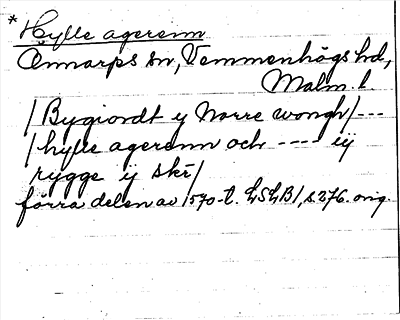 * Hylle agerenn
Önnarps sn, Vemmenhögs hd,
Malm. l.
/Bygiordt y Norre wongh/---
/hylle agerenn och ---- ij
rygge ij skr/
förra delen av 1570-t. LSLB1, s 276. orig.